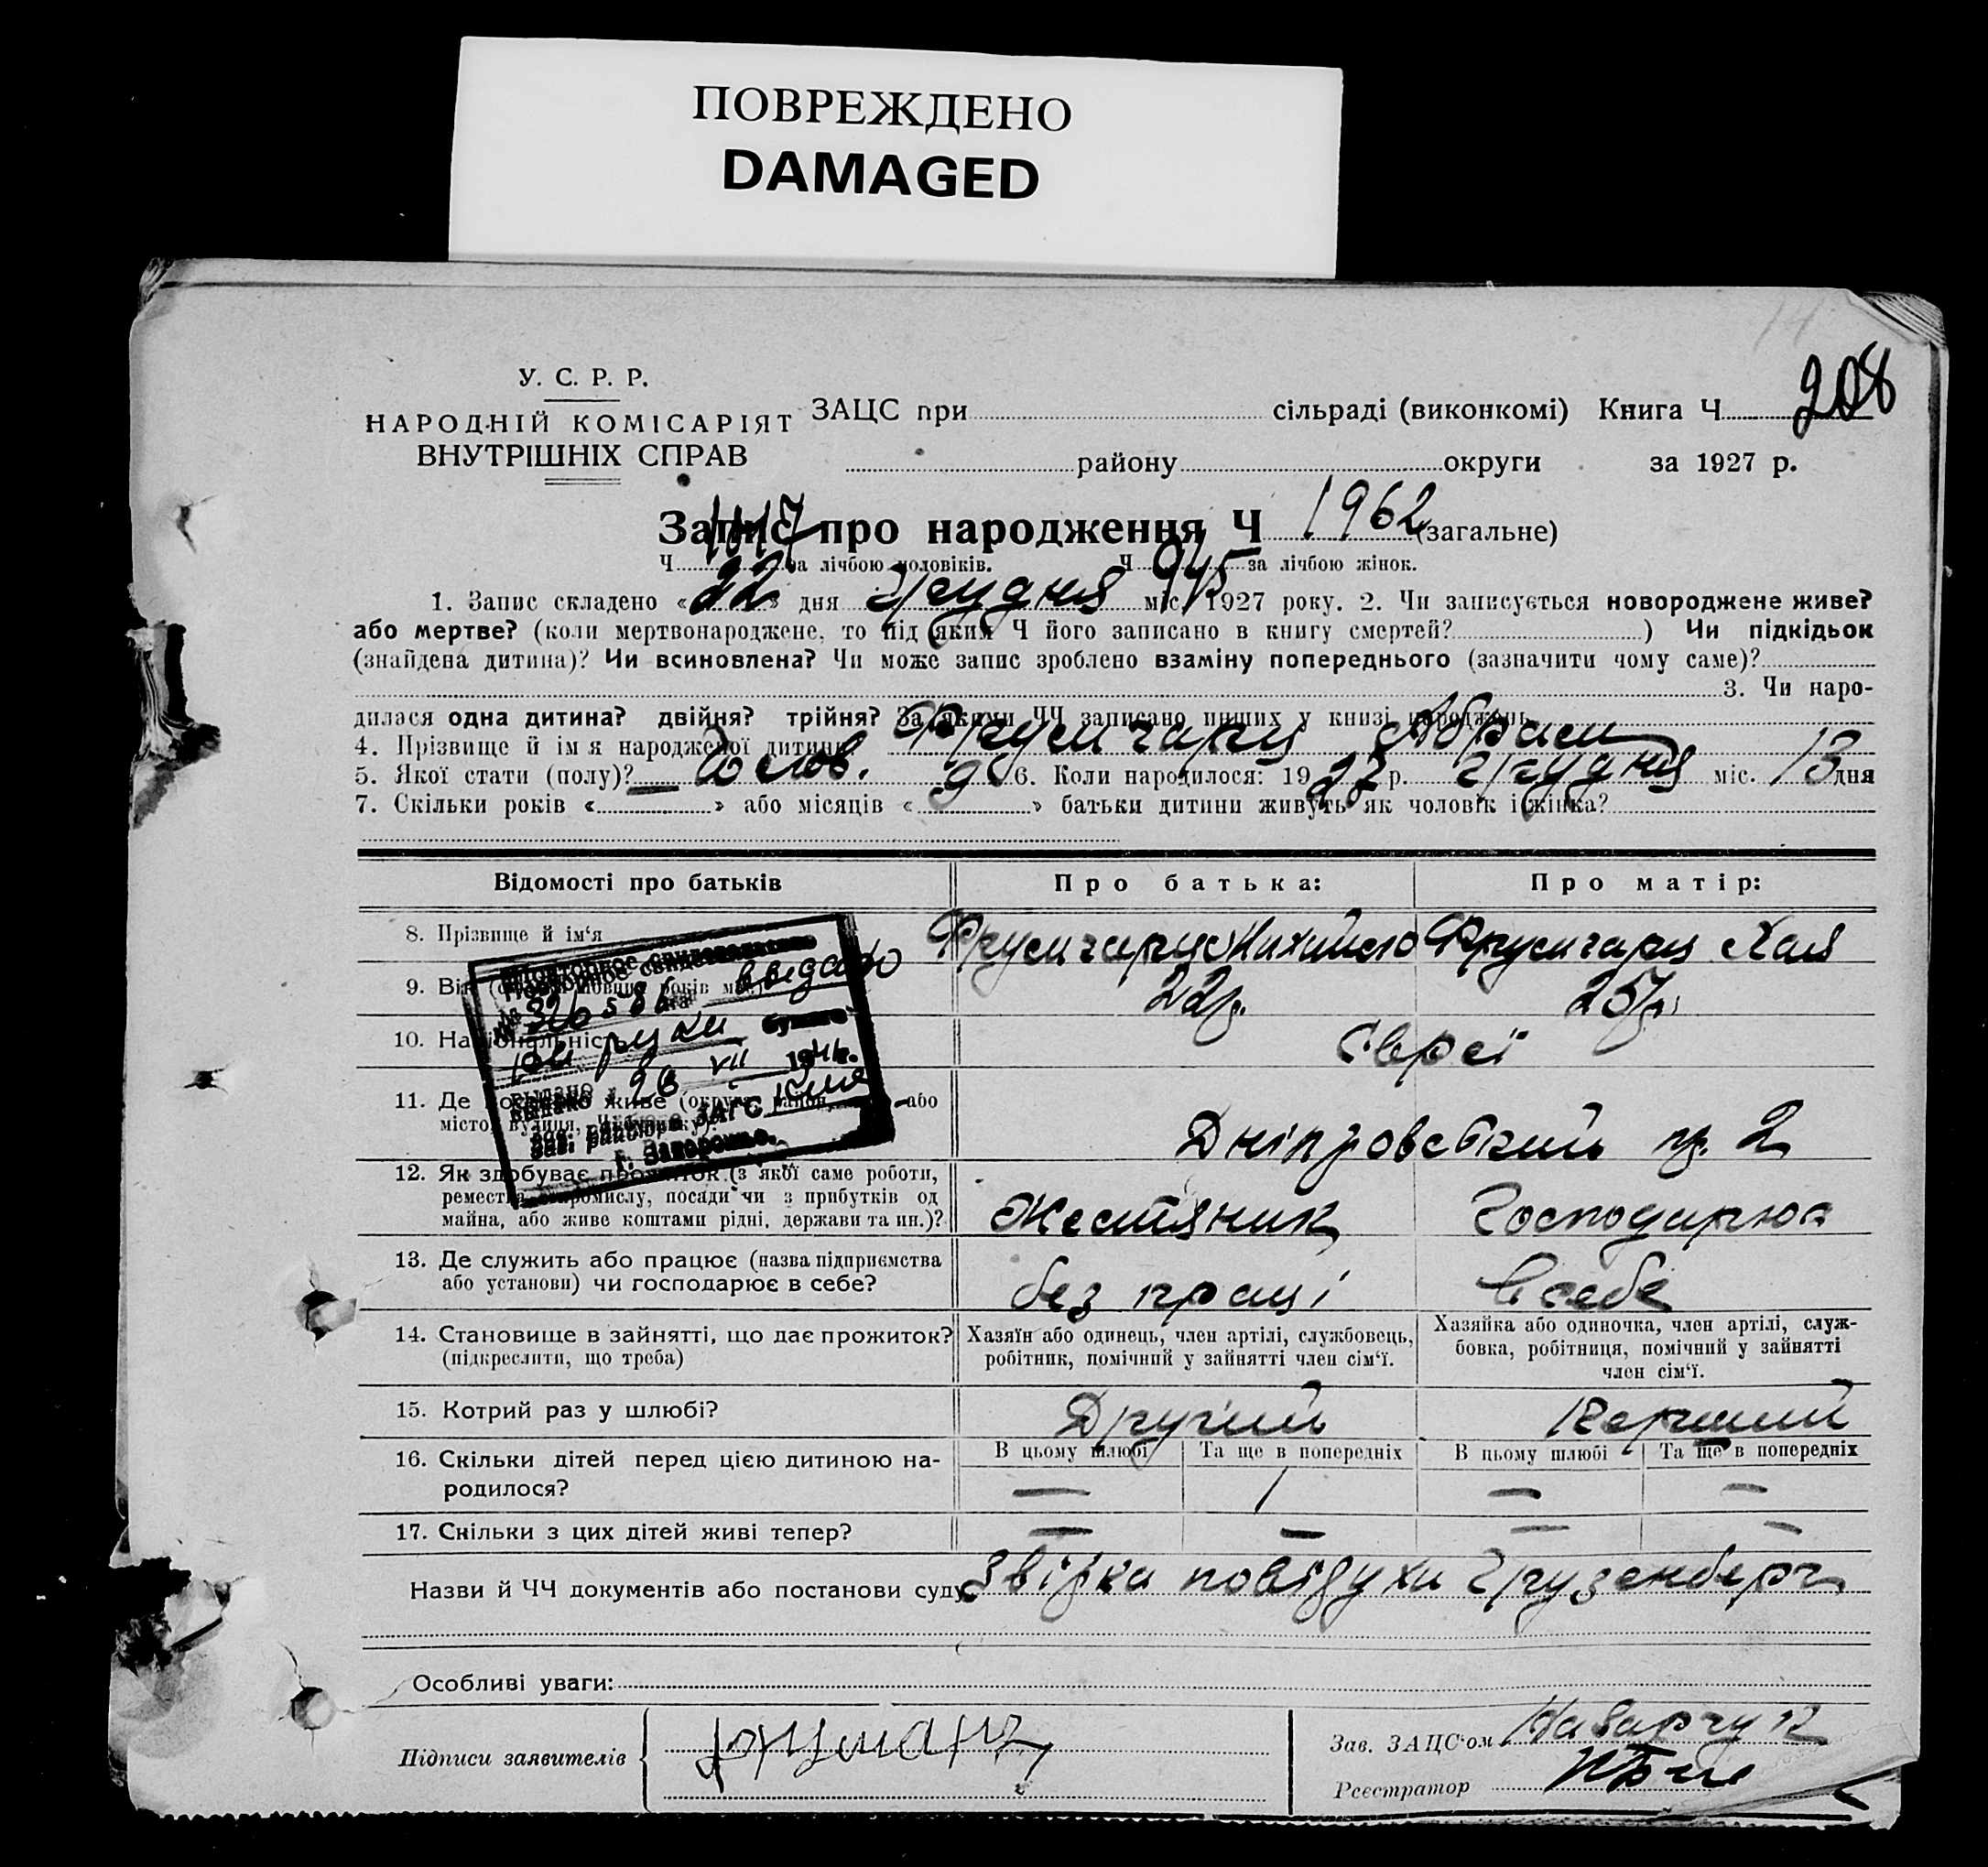 ПОВРЕЖДЕНО
DAMAGED
У. С. Р. Р.
НАРОДНІЙ КОМІСАРІЯТ
ВНУТРІШНІХ СПРАВ
ЗАЦС при сільраді (виконкомі) Книга Ч 208
району округи за 1927 р.
Запис про народження Ч 1962 (загальне)
Ч 1017 за лічбою чоловіків. Ч 945 за лічбою жінок.
1. Запис складено « 22 » дня Грудня міс. 1927 року. 2. Чи записується новороджене живе?
або мертве? (коли мертвонароджене, то під яким Ч його записано в книгу смертей? ) Чи підкідьок
(знайдена дитина)? Чи всиновлена? Чи може запис зроблено взаміну попереднього (зазначити чому саме)?
3. Чи наро-
дилася одна дитина? двійня? трійня? За якими ЧЧ записано инших у книзі народжень
4. Прізвище й ім'я народженої дитини Фрумгарц Абрам
5. Якої стати (полу)? Чолов. 6. Коли народилося: 1927 р. Грудня міс. 13 дня
7. Скільки років « » або місяців « » батьки дитини живуть як чоловік і жінка?
Відомості про батьків Про батька: Про матір:
8. Прізвище й ім'я Фрумгарц Михайло Фрумгарц Хая
9. Вік 22 р. 25 р.
10. Національність Євреї
11. Де постійно живе (округа, район, або
місто, вулиця,
Дніпровський пр. 2
12. Як здобуває прожиток (з якої саме роботи,
ремества, промислу, посади чи з прибутків од
майна, або живе коштами рідні, держави та ин.)?
Жестяник Господарює
13. Де служить або працює (назва підприємства
або установи) чи господарює в себе?
без праці в себе
14. Становище в зайнятті, що дає прожиток?
(підкреслити, що треба)
Хазяїн або одинець, член артілі, службовець,
робітник, помічний у зайнятті член сім'ї.
Хазяйка або одиночка, член артілі, служ-
бовка, робітниця, помічний у зайнятті
член сім'ї.
15. Котрий раз у шлюбі? Другий Перший
16. Скільки дітей перед цією дитиною на-
родилося?
В цьому шлюбі Та ще в попередніх В цьому шлюбі Та ще в попередніх
— 1 — —
17. Скільки з цих дітей живі тепер? — — — —
Назви й ЧЧ документів або постанови суду Звірка повідухи Грузенберг
Особливі уваги:
Підписи заявителів
Зав. ЗАЦС'ом
Реєстратор
Повторное свидетельство
выдано
на руки
выдано 26 VII 194
зав. райбюро ЗАГС
г. Запорожье.